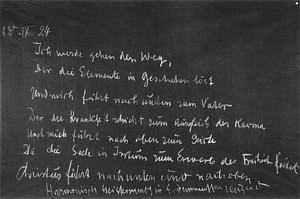 18. IX. 24
Ich werde gehen den Weg,
Der die Elemente in Geschehen löst
Und mich führt nach unten zum Vater
Der die Krankheit schickt zum Ausgleich des Karma
Und mich führt nach oben zum Geiste
Der die Seele in Irrtum zum Erwerb der Freiheit leitet
Christus führt nach unten und nach oben
Harmonisch Geistesmensch in Erdenmenschen zeugend